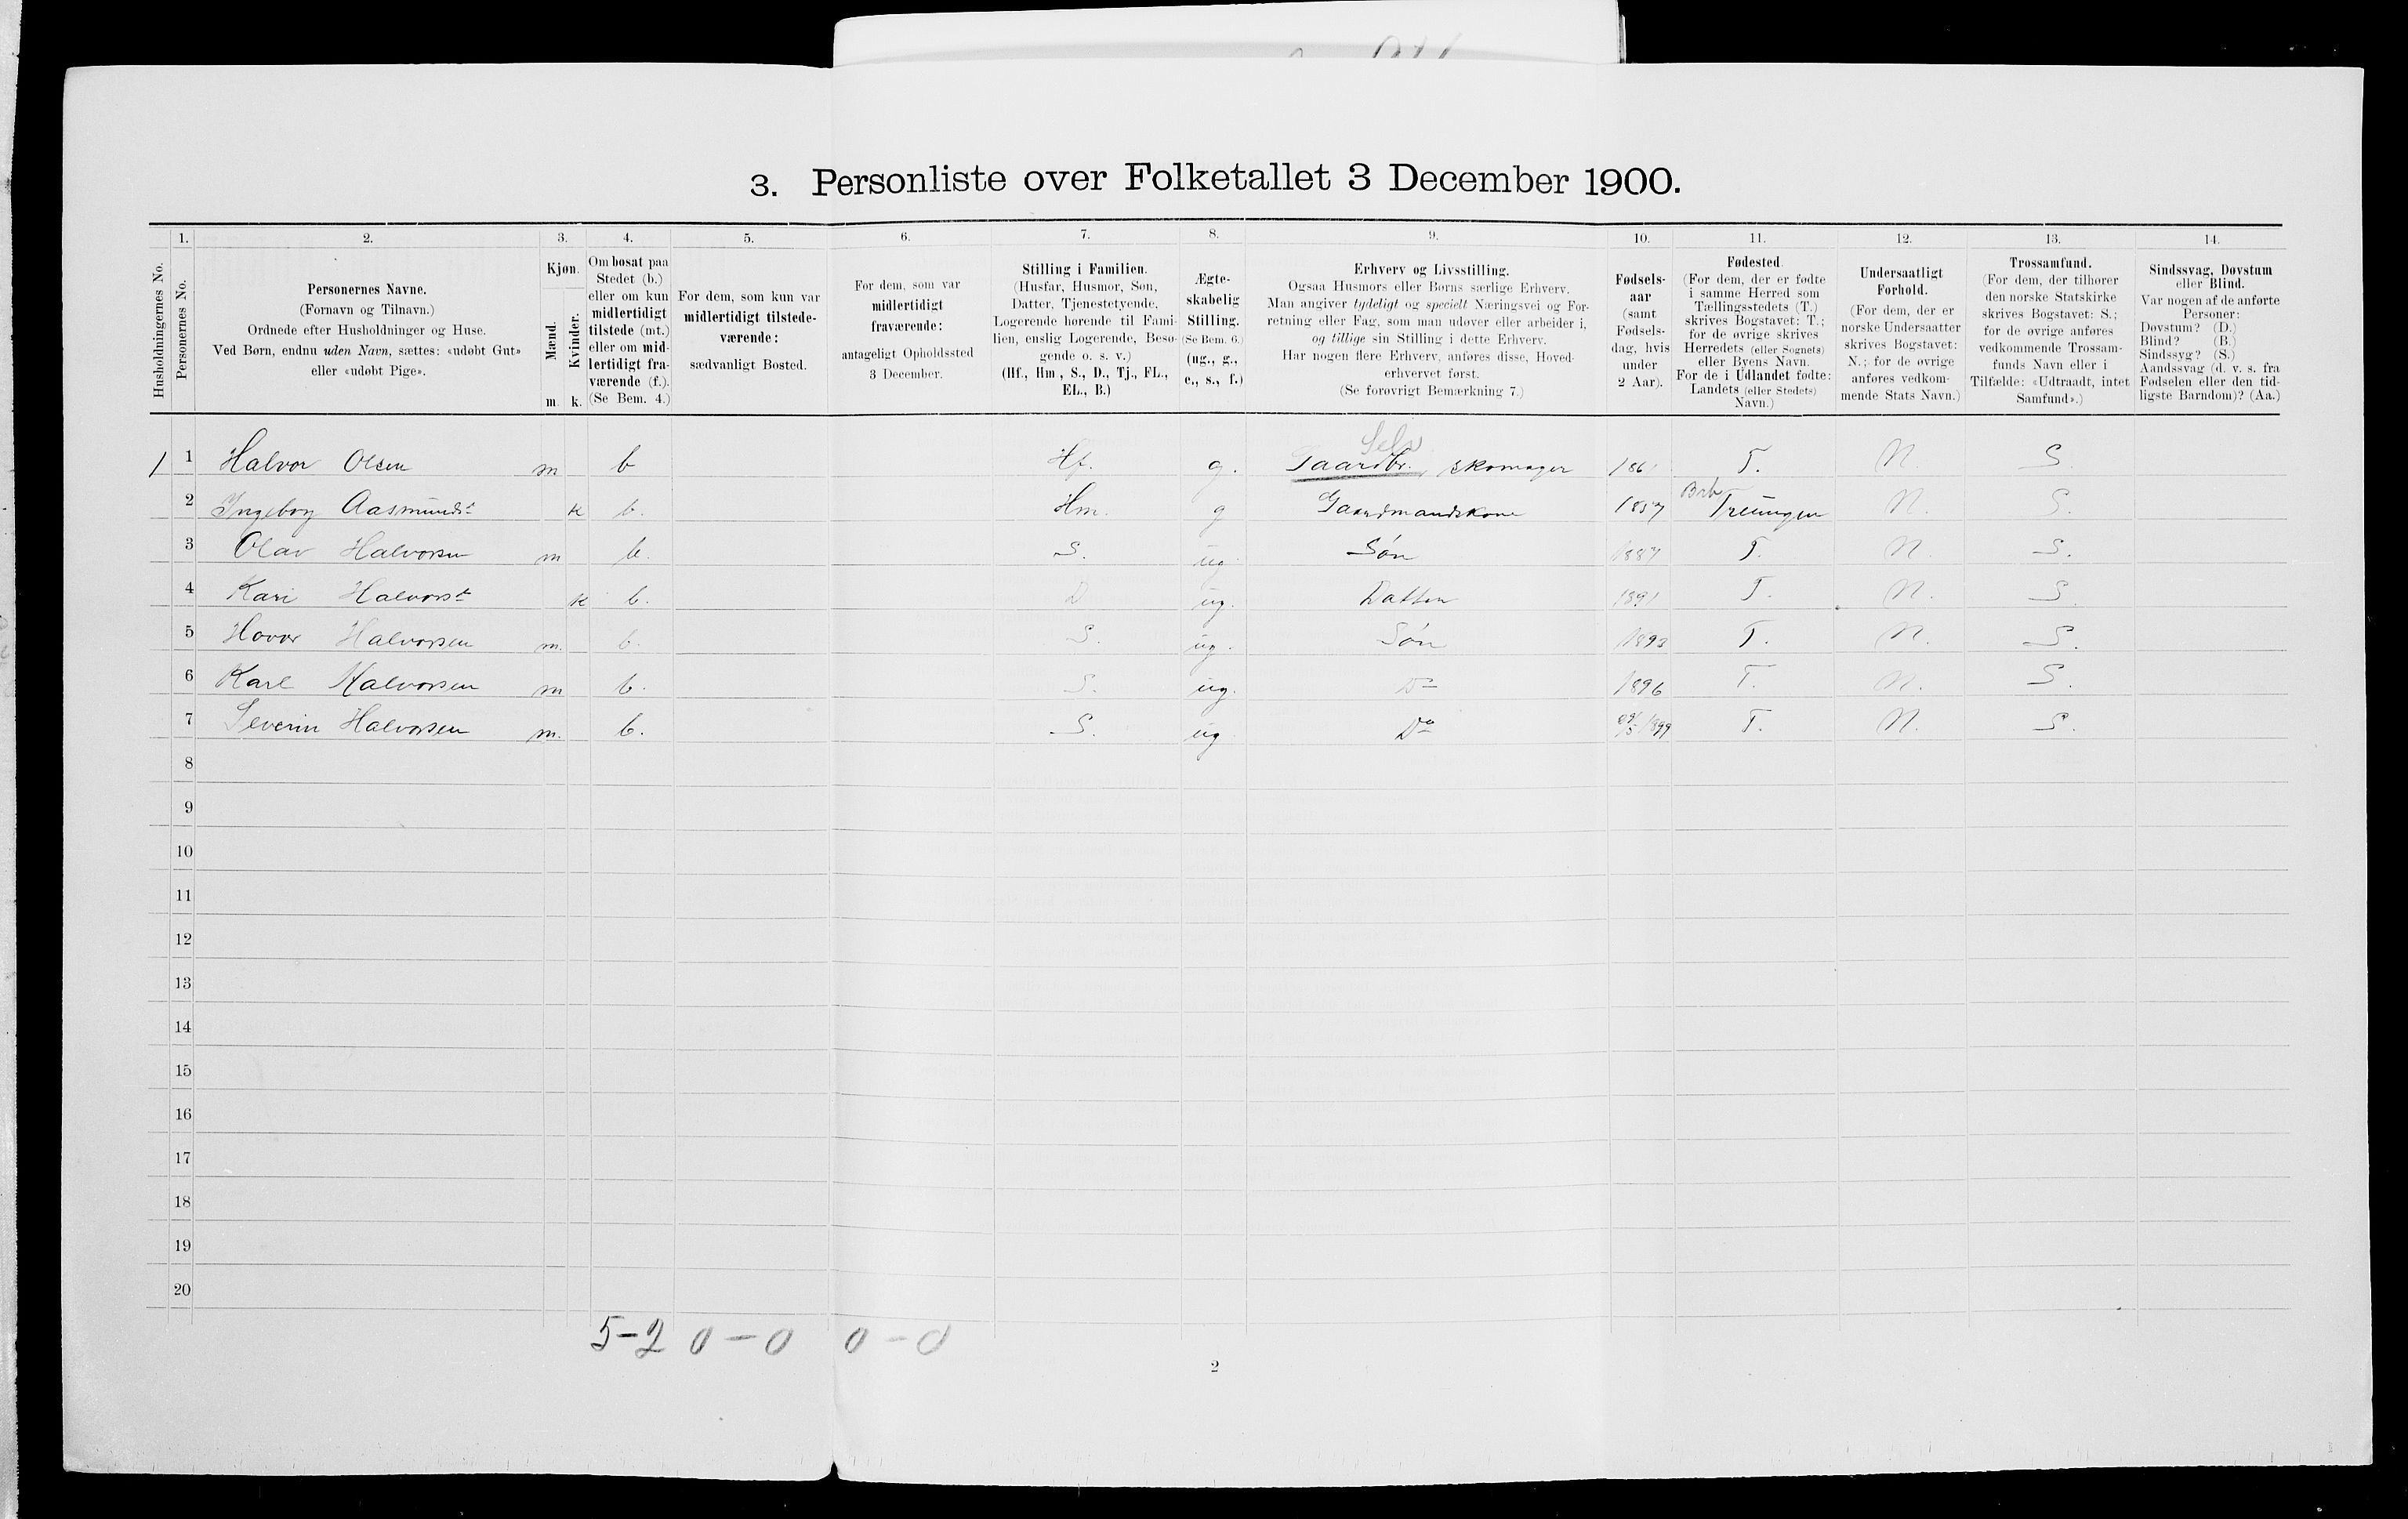 3. Personliste over Folketallet 3 December 1900.
Husholdningernes No.
1.
Personernes No.
2.
Personernes Navne.
(Fornavn og Tilnavn.)
Ordnede efter Husholdninger og Huse.
Ved Børn, endnu uden Navn, sættes: «udøbt Gut»
eller «udøbt Pige».
3.
Kjøn.
Mænd.
Kvinder.
m. k.
4.
Om bosat paa
Stedet (b.)
eller om kun
midlertidigt
tilstede (mt.)
eller om mid-
lertidigt fra-
værende (f.).
(Se Bem. 4.)
5.
For dem, som kun var
midlertidigt tilstede-
værende:
sædvanligt Bosted.
6.
For dem, som var
midlertidigt
fraværende:
antageligt Opholdssted
3 December.
7.
Stilling i Familien.
(Husfar, Husmor, Søn,
Datter, Tjenestetyende,
Logerende hørende til Fami-
lien, enslig Logerende, Besø-
gende o. s. v.)
(Hf., Hm., S., D., Tj., FL.,
EL., B.)
8.
Ægte-
skabelig
Stilling.
(Se Bem. 6.)
(ug., g.,
e., s., f.)
9.
Erhverv og Livsstilling.
Ogsaa Husmors eller Børns særlige Erhverv.
Man angiver tydeligt og specielt Næringsvei og For-
retning eller Fag, som man udøver eller arbeider i,
og tillige sin Stilling i dette Erhverv.
Har nogen flere Erhverv, anføres disse, Hoved-
erhvervet først.
(Se forøvrigt Bemærkning 7.)
10.
Fødsels-
aar
(samt
Fødsels-
dag, hvis
under
2 Aar).
11.
Fødested.
(For dem, der er fødte
i samme Herred som
Tællingsstedets (T.)
skrives Bogstavet: T.;
for de øvrige skrives
Herredets (eller Sognets)
eller Byens Navn.
For de i Udlandet fødte:
Landets (eller Stedets)
Navn.)
12.
Undersaatligt
Forhold.
(For dem, der er
norske Undersaatter
skrives Bogstavet:
N.; for de øvrige
anføres vedkom-
mende Stats Navn.)
13.
Trossamfund.
(For dem, der tilhører
den norske Statskirke
skrives Bogstavet: S.;
for de øvrige anføres
vedkommende Trossam-
funds Navn eller i
Tilfælde: «Udtraadt, intet
Samfund».)
14.
Sindssvag, Døvstum
eller Blind.
Var nogen af de anførte
Personer:
Døvstum? (D.)
Blind? (B.)
Sindssyg? (S.)
Aandssvag (d. v. s. fra
Fødselen eller den tid-
ligste Barndom)? (Aa.)
Selv
1 1 Halvor Olsen m b Hf. g. Gaardbr. skomager 186 T. N S.
2 Ingeborg Aasmundsd k b. Hm. g Gaardmandskone 1857 Treungen N. S.
3 Olav Halvorsen m b. S. ug Søn 1887 T. N. S.
4 Kari Halvorsd k b. D ug. Datter 1891 T. N. S.
5 Hovar Halvorsen m. b. S. ug. Søn 1893 T. N. S.
6 Karl Halvorsen m b. S. ug. Do 1896 T. N. S.
7 Severin Halvorsen m. b. S. ug Do 1899 T. N. S.
8
9
10
11
12
13
14
15
16
17
18
19
20
5-2 0-0 0-0
2